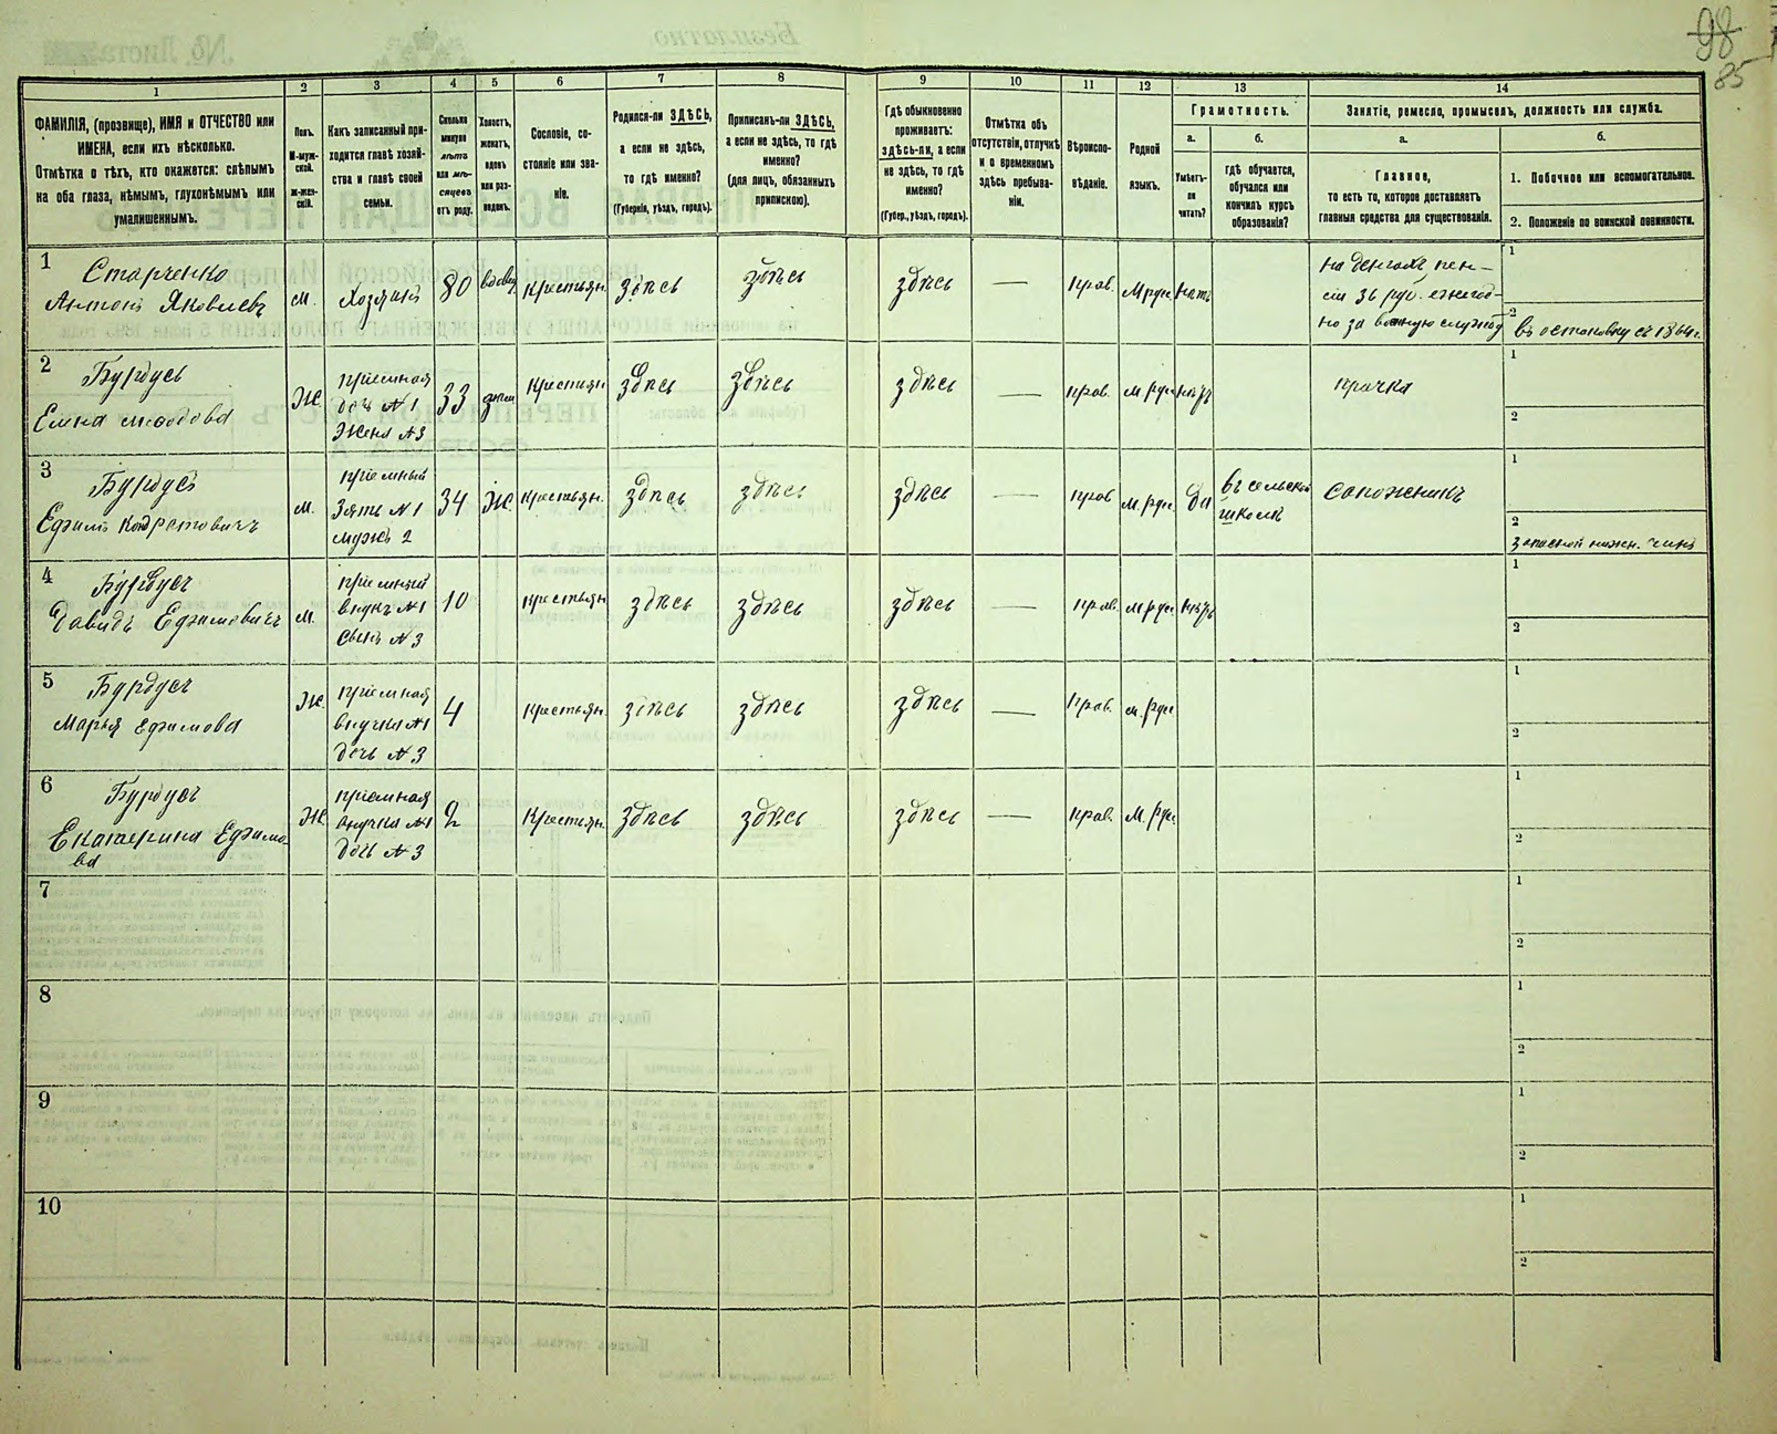 98
85
1
2
3
4
5
6
7
8
9
10
11
12
13
14
ФАМИЛІЯ, (прозвище), ИМЯ и ОТЧЕСТВО или
ИМЕНА, если ихъ нѣсколько.
Отмѣтка о тѣхъ, кто окажется: слѣпымъ
на оба глаза, нѣмымъ, глухонѣмымъ или
умалишеннымъ.
Полъ.
М-муж-
ской.
Ж-жен-
скій.
Какъ записанный при-
ходится главѣ хозяй-
ства и главѣ своей
семьи.
Сколько
минуло
лѣтъ
или мѣ-
сяцевъ
отъ роду.
Холостъ,
женатъ,
вдовъ
или раз-
веденъ.
Сословіе, со-
стояніе или зва-
ніе.
Родился-ли ЗДѢСЬ,
а если не здѣсь,
то гдѣ именно?
(Губернія, уѣздъ, городъ).
Приписанъ-ли ЗДѢСЬ,
а если не здѣсь, то гдѣ
именно?
(для лицъ, обязанныхъ
припискою).
Гдѣ обыкновенно
проживаетъ:
здѣсь-ли, а если
не здѣсь, то гдѣ
именно?
(Губер., уѣздъ, городъ).
Отмѣтка объ
отсутствіи, отлучкѣ
и о временномъ
здѣсь пребыва-
ніи.
Вѣроиспо-
вѣданіе.
Родной
языкъ.
Грамотность.
а.
б.
Умѣетъ-
ли
читать?
гдѣ обучается,
обучался или
кончилъ курсъ
образованія?
Занятіе, ремесло, промыселъ, должность или служба.
а.
б.
Главное,
то есть то, которое доставляетъ
главныя средства для существованія.
1. Побочное или вспомогательное.
2. Положеніе по воинской повинности.
1
Старченко
Антонъ Яковлевъ
м.
Хозяинъ
80
вдовъ
Крестьян.
здѣсь
здѣсь
здѣсь
—
прав.
М.рус.
нѣтъ
на деньгахъ пен-
сіи 36 руб. ежегод-
но за военную службу
1
2
въ отставку съ 1864 г.
2
Бурдусъ
Елена
Ж
пріемная
дочь № 1
Жена № 3
33
Крестьян
здѣсь
здѣсь
здѣсь
прав.
м.рус.
нѣтъ
прачка
1
2
3
Бурдусъ
Ефимъ Кондратовичъ
м.
пріемный
Зять № 1
мужъ 2
34
Ж.
Крестьян.
здѣсь
здѣсь
здѣсь
—
прав
М.рус.
да
въ сельской
школѣ
сапожникъ
1
2
запасной нижн. чинъ
4
Бурдусъ
Давидъ Ефимовичъ
м.
пріемный
внукъ № 1
сынъ № 3
10
крестьян
здѣсь
здѣсь
здѣсь
—
прав.
м.рус.
нѣтъ
1
2
5
Бурдусъ
Марья Ефимова
Ж.
пріемная
внучка № 1
дочь № 3
4
крестьян.
здѣсь
здѣсь
здѣсь
—
прав.
м.рус
1
2
6
Бурдусъ
Екатерина Ефимо-
ва
Ж
пріемная
внучка № 1
дочь № 3
2
Крестьян.
здѣсь
здѣсь
здѣсь
—
прав.
М.рус.
1
2
7
1
2
8
1
2
9
1
2
10
1
2